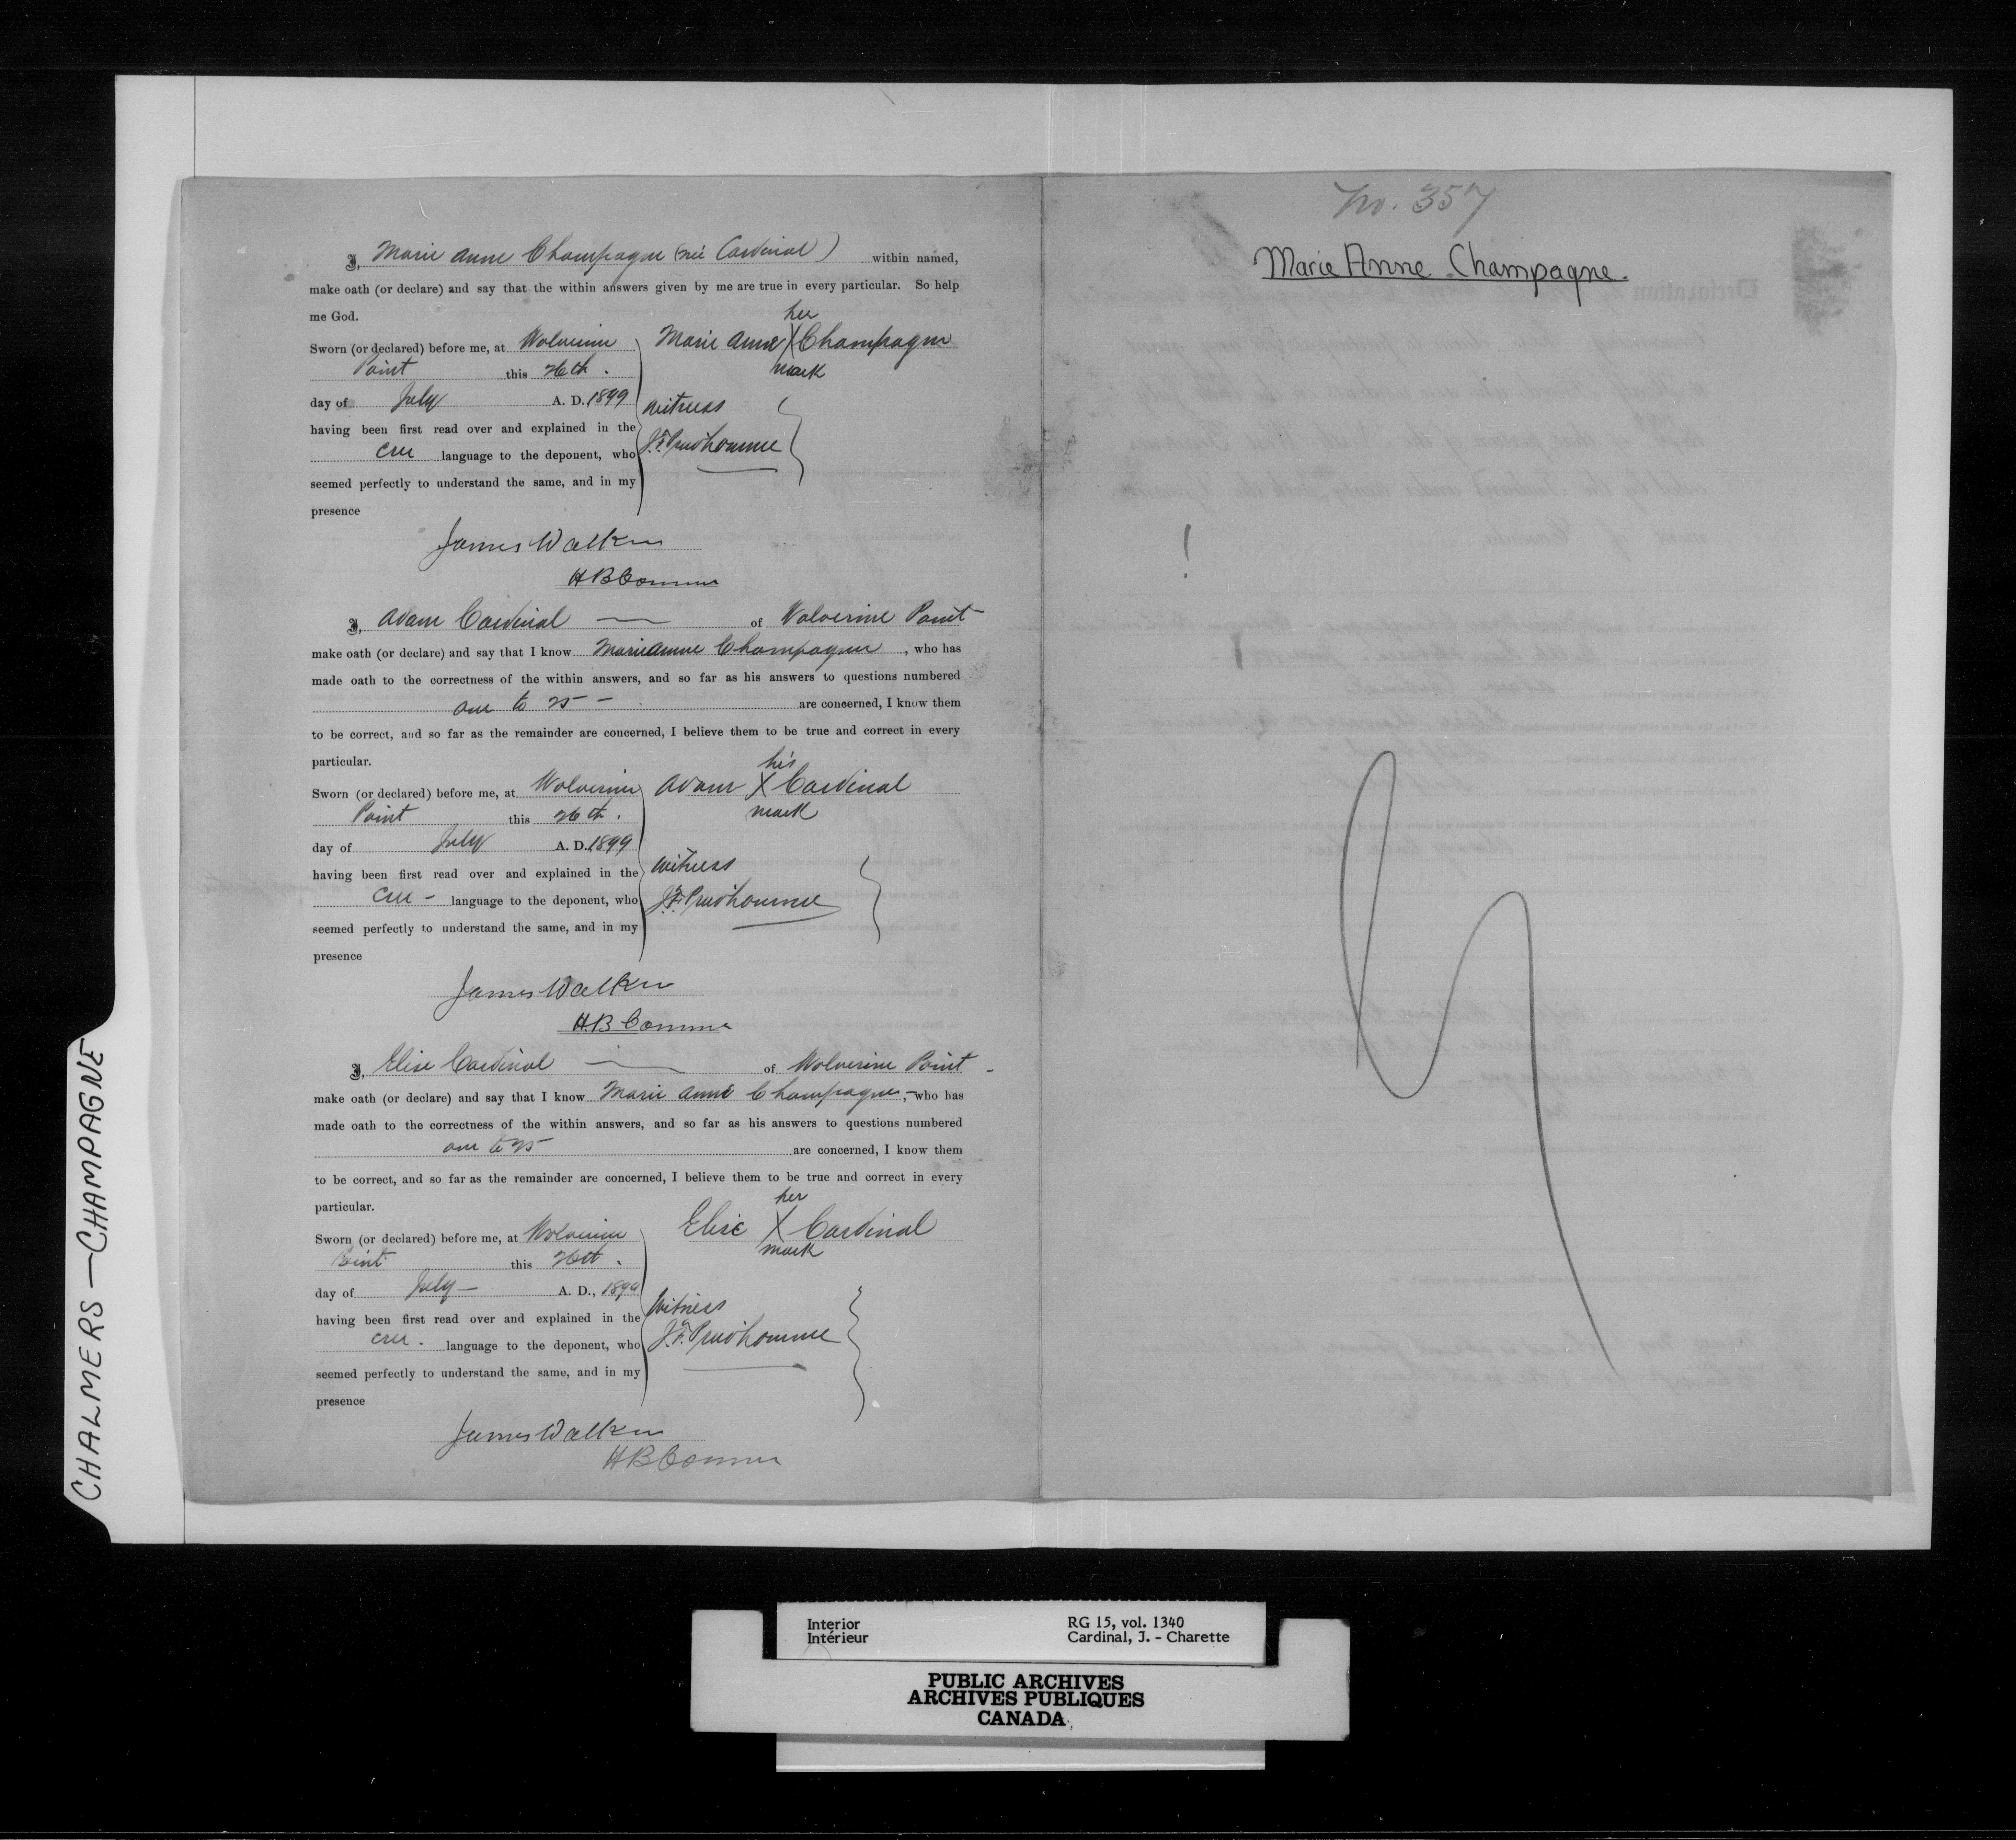 I, Marie Anne Champagne (née Cardinal) within named,
make oath (or declare) and say that the within answers given by me are true in every particular. So help
me God.
her
Sworn (or declared) before me, at Wolverine Marie Anne X Champagne
Point this 26th. mark
day of July A. D. 1899 witness
having been first read over and explained in the
Cree language to the deponent, who J.F. Prudhomme
seemed perfectly to understand the same, and in my
presence
James Walker
H B Comm
I, Adam Cardinal of Wolverine Point
make oath (or declare) and say that I know Marie Anne Champagne, who has
made oath to the correctness of the within answers, and so far as his answers to questions numbered
one to 25 - are concerned, I know them
to be correct, and so far as the remainder are concerned, I believe them to be true and correct in every
particular.
his
Sworn (or declared) before me, at Wolverine Adam X Cardinal
Point this 26th. mark
day of July A. D. 1899
having been first read over and explained in the witness
Cree - language to the deponent, who J.F. Prudhomme
seemed perfectly to understand the same, and in my
presence
James Walker
H.B Comm
I, Elise Cardinal of Wolverine Point -
make oath (or declare) and say that I know Marie Anne Champagne, who has
made oath to the correctness of the within answers, and so far as his answers to questions numbered
one to 25 are concerned, I know them
to be correct, and so far as the remainder are concerned, I believe them to be true and correct in every
particular.
her
Sworn (or declared) before me, at Wolverine Elise X Cardinal
Point this 26th. mark
day of July - A. D., 1899
having been first read over and explained in the Witness
Cree. language to the deponent, who J.F. Prudhomme
seemed perfectly to understand the same, and in my
presence
James Walker
H B Comm
No. 357
Marie Anne Champagne.
CHALMERS — CHAMPAGNE
Interior RG 15, vol. 1340
Intérieur Cardinal, J. - Charette
PUBLIC ARCHIVES
ARCHIVES PUBLIQUES
CANADA